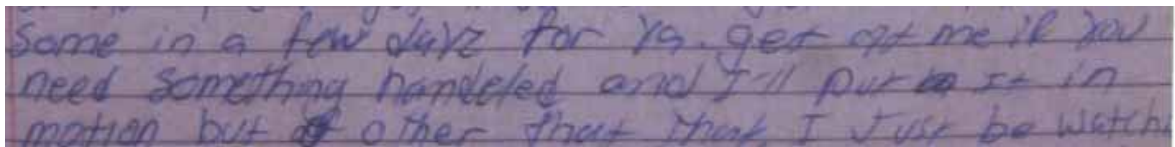 some in a few dayz for ya. get at me if you
need something handeled and I'll put It in
motion but other that that, I Just be watch